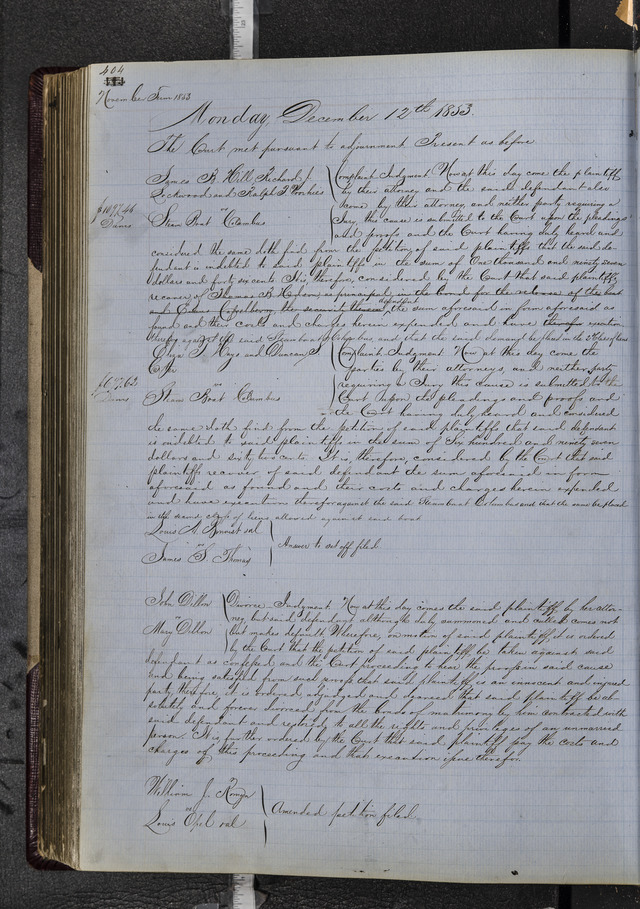 404
November Term 1853
Monday, December 12th 1853.
The Court met pursuant to adjournment Present as before
James B Hill Richard J. Complaint Judgment Now at this day come the plaintiffs
Lockwood and Ralph Voorhies by their attorney and the said defendant also
$1097.46 vs come by their attorney, and neither party requiring a
Dams Steam Boat Columbus Jury, the cause is submitted to the Court upon the pleadings
and proofs and the Court having duly heard and
considered the same doth find from the petition of said plaintiffs that the said de-
fendant is indebted to said plaintiffs in the sum of One thousand and ninety seven
dollars and forty six cents It is, therefore, considered by the Court that said plaintiffs
recover of Thomas B as principal, in the bond for the release of the boat
and the security therein defendant the sum aforesaid in form aforesaid as
found and their costs and charges herein expended and have therefor execution
thereof against the said Steam boat Columbus, and that the said demand be placed in the class of liens
J Hays and Duncan S Complaint Judgment Now at this day come the
parties by their attorneys, and neither party
$697.62 vs requiring a Jury this cause is submitted to the
Dams Steam Boat Columbus Court upon the pleadings and proofs and
the Court having duly heard and considered
the same doth find from the petition of said plaintiffs that said defendant
is indebted to said plaintiffs in the sum of Six hundred and ninety seven
dollars and sixty two cents It is, therefore, considered by the Court that said
plaintiffs recover of said defendant the sum aforesaid in form
aforesaid as found and their costs and charges herein expended
and have execution therefor against the said Steamboat Columbus and that the same be placed
in the second class of liens allowed against said boat
Louis A. et al
vs Answer to set off filed
James S Thomas
John Dillon Divorce Judgment Now at this day comes the said plaintiff by his attor-
vs ney, but said defendant although duly summoned and called comes not
Mary Dillon but makes default Wherefore, on motion of said plaintiff it is ordered
by the Court that the petition of said plaintiff be taken against said
defendant as confessed and the Court proceeding to hear the proofs in said cause
and being satisfied from such proofs that said plaintiff is an innocent and injured
party therefore, it is ordered, adjudged and decreed that said plaintiff be ab-
solutely and forever divorced from the bonds of matrimony by him contracted with
said defendant and restored to all the rights and privileges of an unmarried
person. It is further ordered by the Court that said plaintiff pay the costs and
charges of this proceeding and that execution issue therefor.
William J. Romyn
vs Amended petition filed
Louis Opel et al